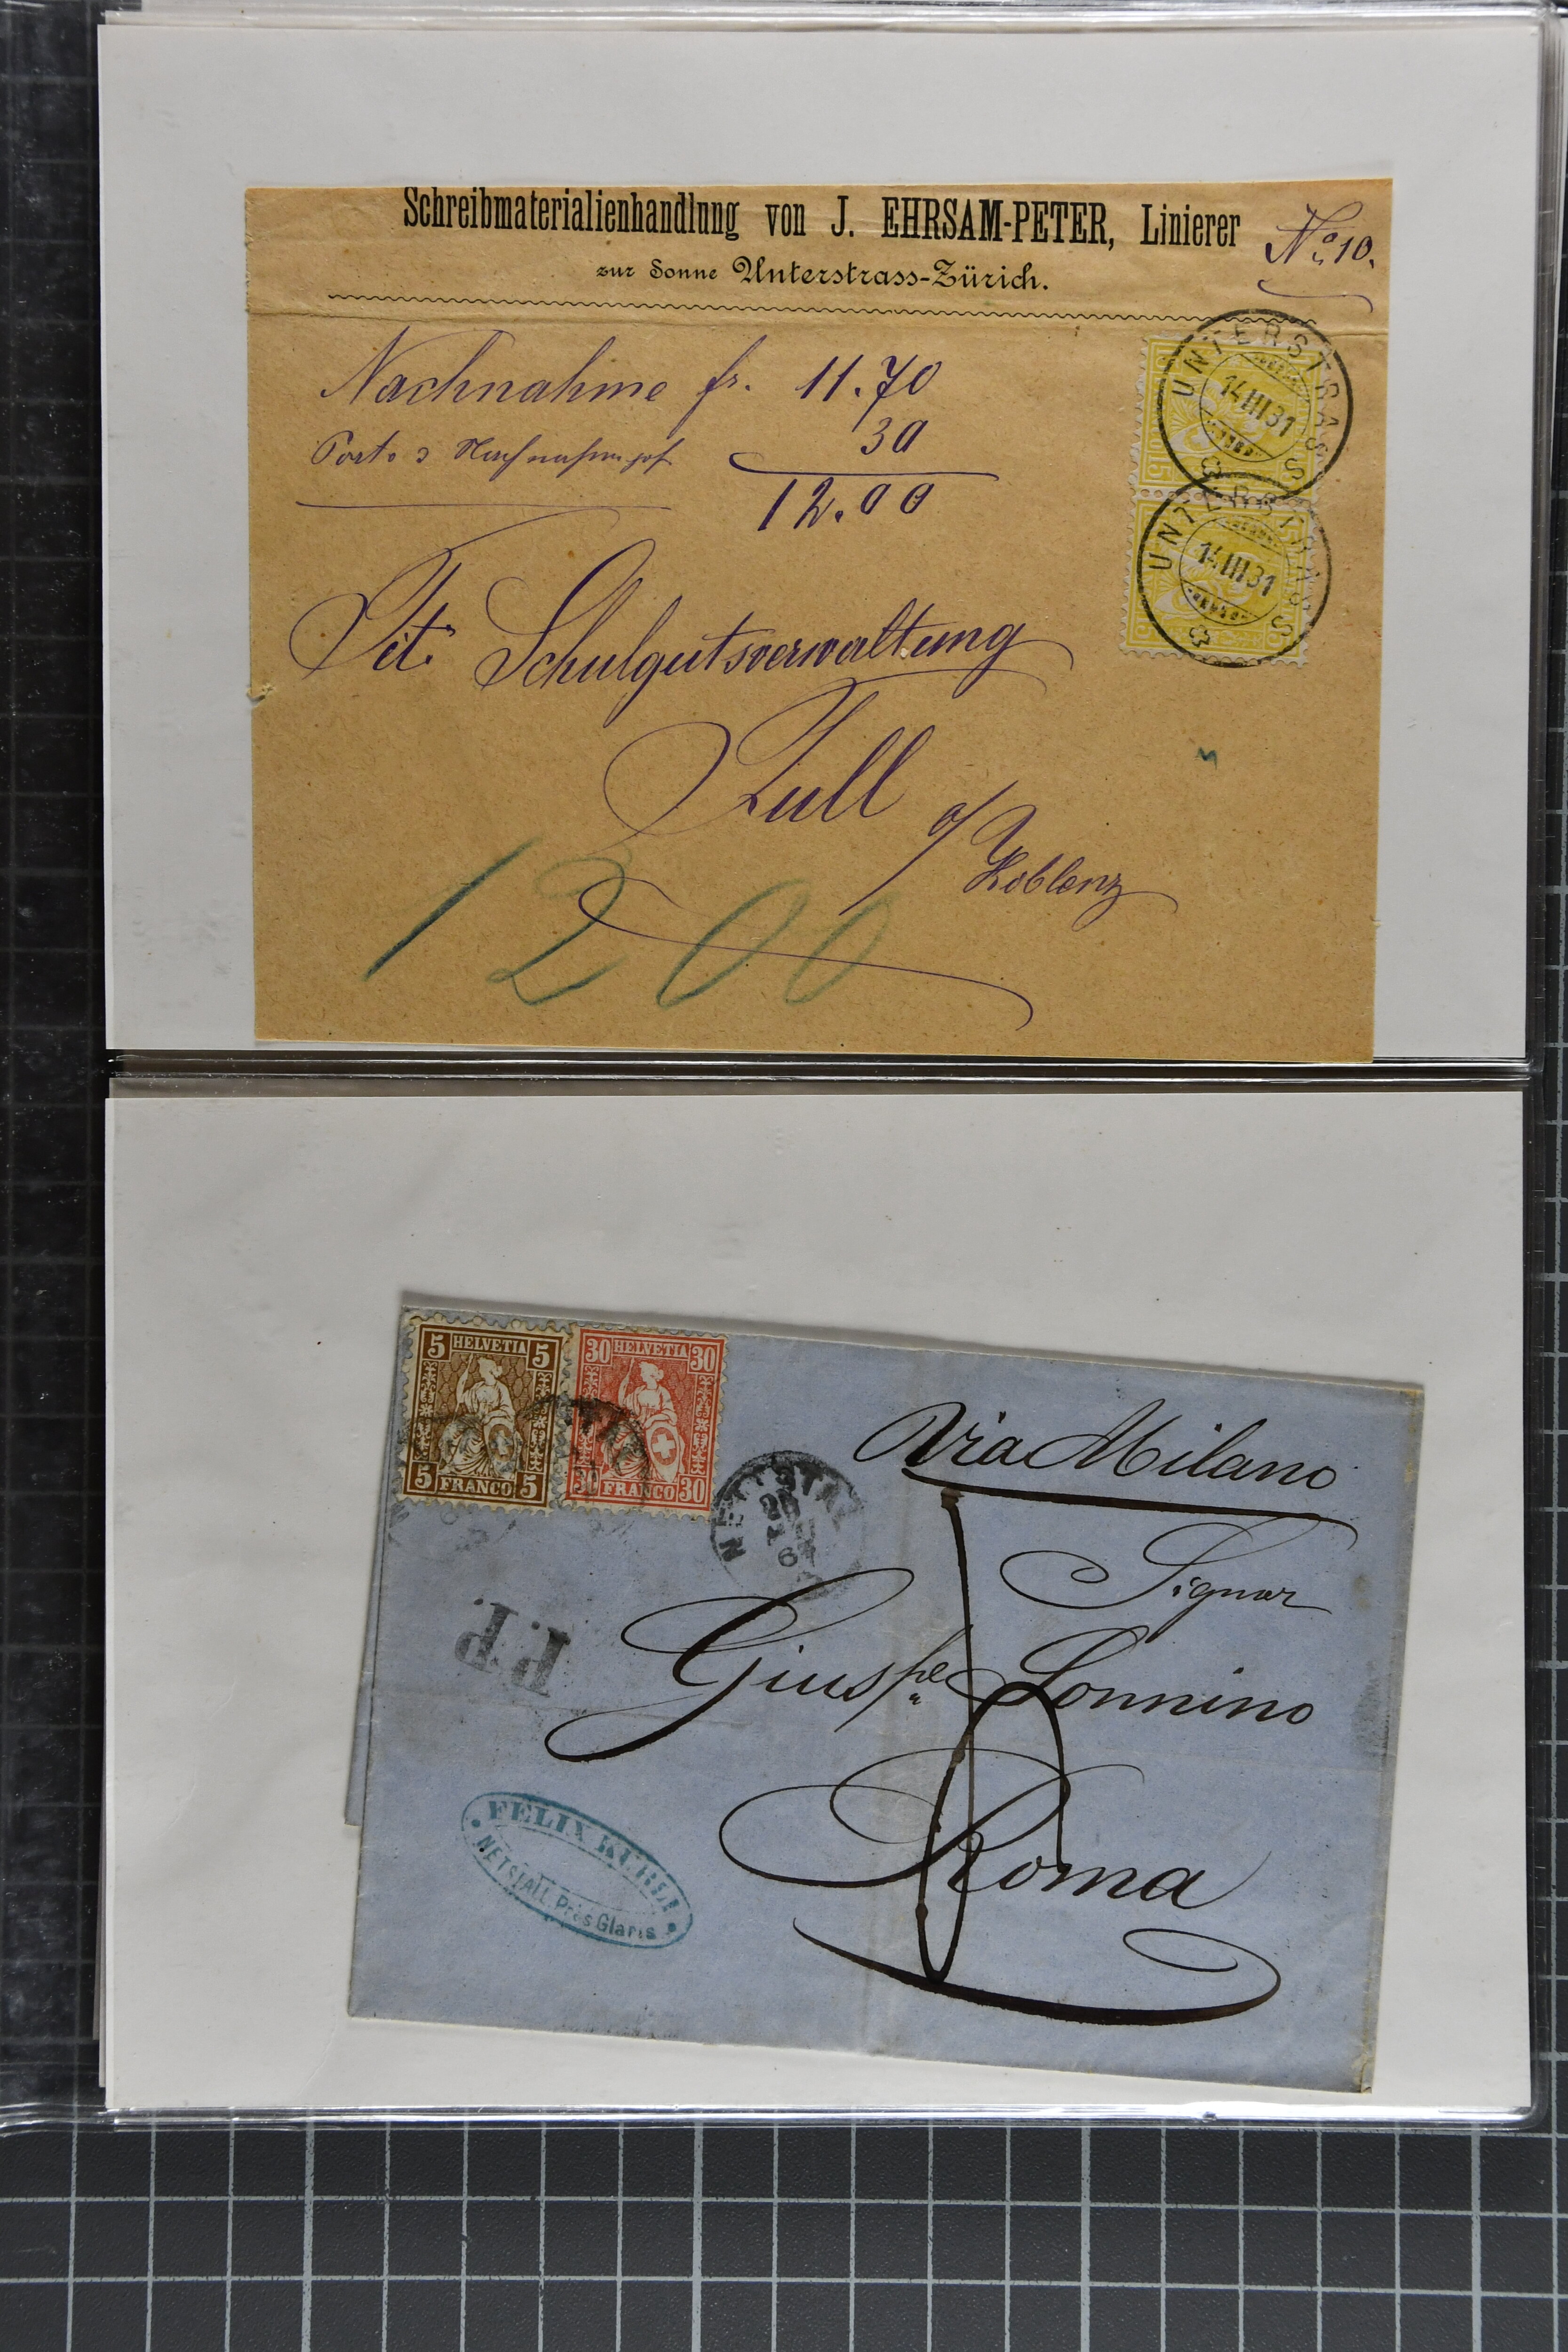 Schreibmaterialienhandlung von J. EHRSAM-PETER, Linierer
No 10.
zur Sonne Unterstrass-Zürich.
Nachnahme fr. 11.70
Porto 30
12.00
UNTERSTRASS
14 III 81
UNTERSTRASS
14 III 81
15 15
Tit. Schulgutsverwaltung
Full
a/ Koblenz
1200
5 HELVETIA 5
5 FRANCO 5
30 HELVETIA 30
30 FRANCO 30
Via Milano
NETSTAL
Signor
P.P.
Giuspe Sonnino
Roma
FELIX KUBLI
NETSTALL Près Glaris